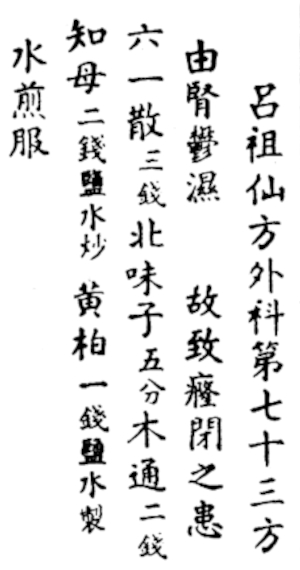 呂祖仙方外科第七十三方
由腎鬱濕 故致癃閉之患
六一散三錢北味子五分木通二錢
知母二錢鹽水炒 黃柏一錢鹽水製
水煎服